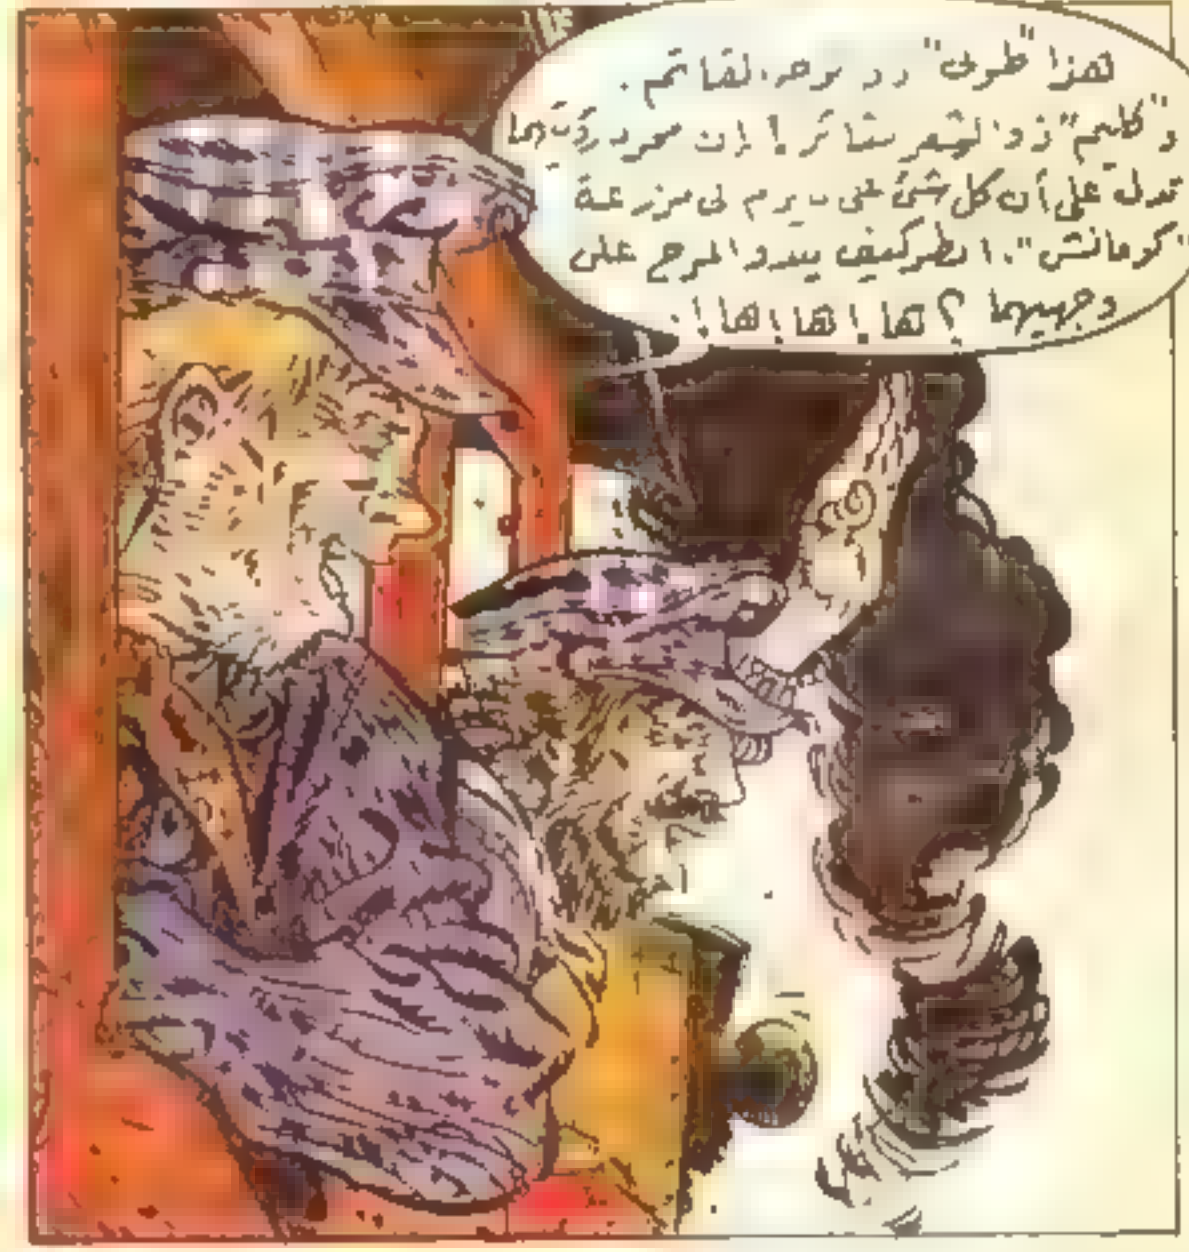 هذا "طوني" ذو الوجه القاتم.
و"كليم" ذو الشعر الثائر! إن مجرد رؤيتهما
تدل على أن كل شئ على ما يرام في مزرعة
"كومانش". انظر كيف يبدو المرح على
وجهيهما؟ ها! ها! ها!.